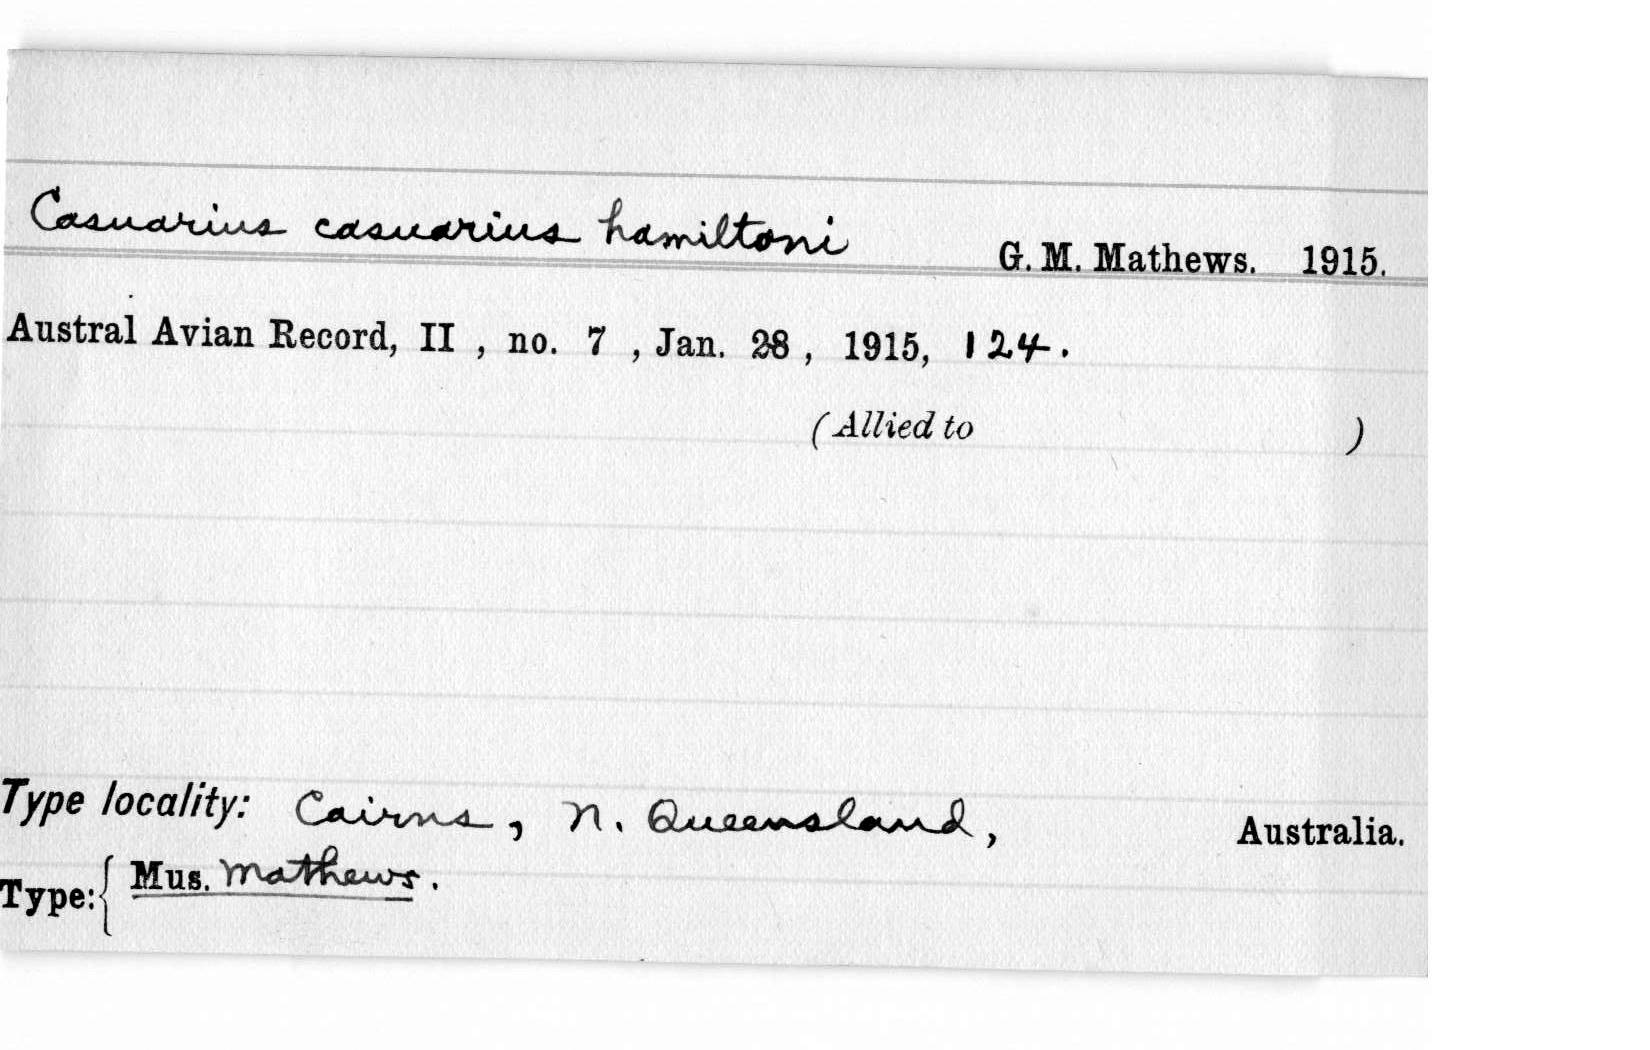 Casuarius casuarius hamiltoni G. M. Mathews. 1915.
Austral Avian Record, II , no. 7 , Jan. 28 , 1915, 124.
(Allied to )
Type locality: Cairns, N. Queensland, Australia.
Type: { Mus. Mathews.